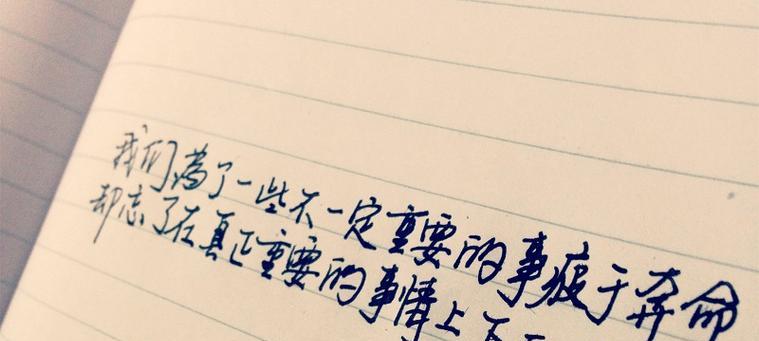 我们為了一些不一定重要的事疲于奔命
却忘了在真正重要的事情上下